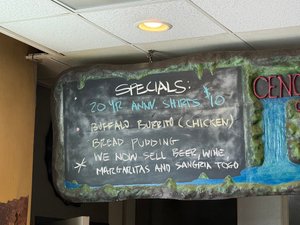 SPECIALS:
20 YR ANNV. SHIRTS $10
BUFFALO BURRITO (CHICKEN)
BREAD PUDDING
* WE NOW SELL BEER, WINE
MARGARITAS AND SANGRIA TOGO
CENO